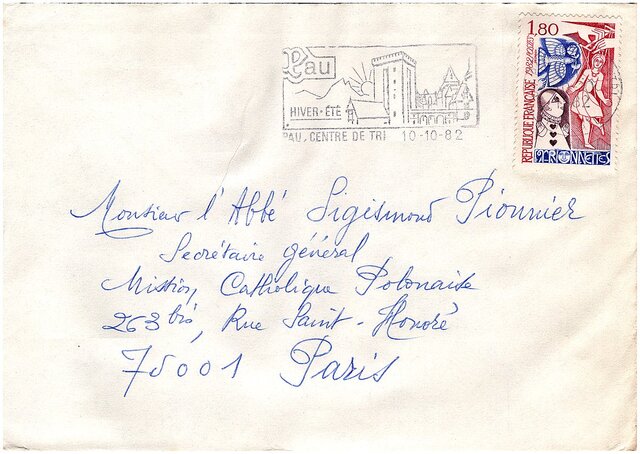 Pau
HIVER-ÉTÉ
PAU, CENTRE DE TRI 10-10-82
1,80
REPUBLIQUE FRANÇAISE
MARIONNETTES
Monsieur l'Abbé Sigismond Pionnier
Secrétaire général
Mission Catholique Polonaise
263 bis, Rue Saint-Honoré
75001 Paris